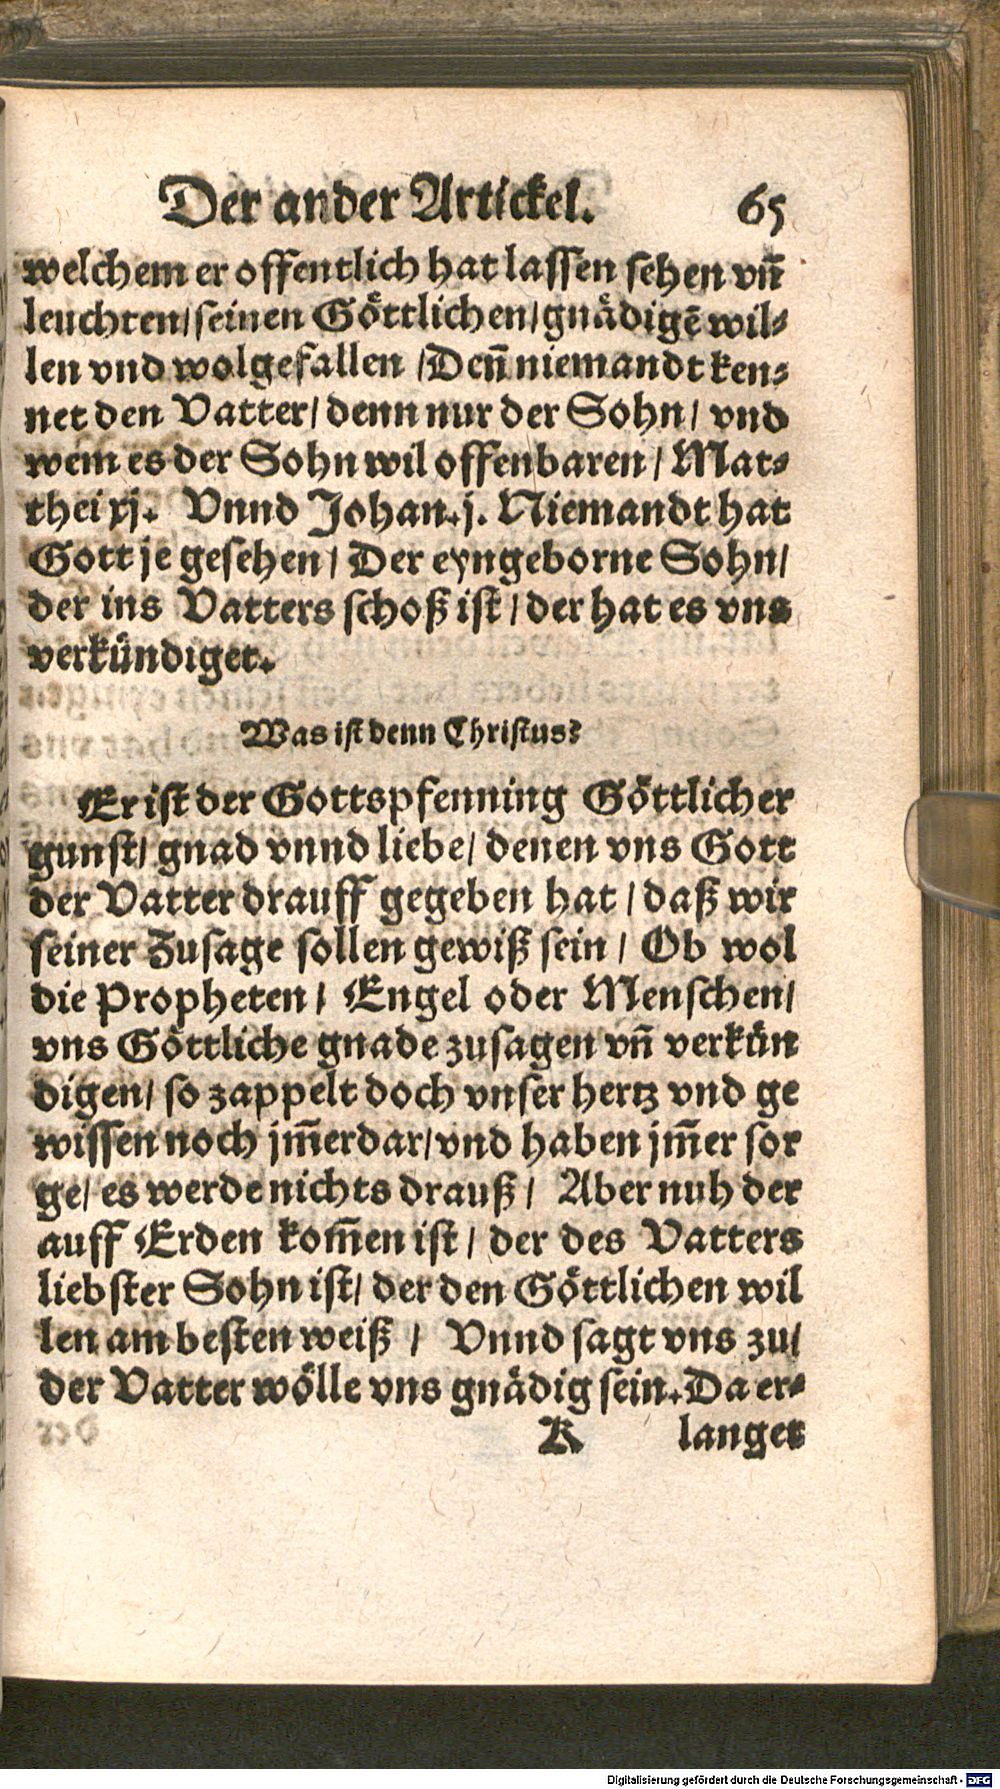 Der ander Artickel. 65
welchem er offentlich hat lassen sehen vn̄
leuchten/seinen Göttlichen/gnädigē wil-
len vnd wolgefallen /Deñ niemandt ken-
net den Vatter/ denn nur der Sohn/ vnd
wem es der Sohn wil offenbaren / Mat-
thei xj. Vnnd Johan. j. Niemandt hat
Gott je gesehen / Der eyngeborne Sohn/
der ins Vatters schoß ist / der hat es vns
verkündiget.
Was ist denn Christus?
Er ist der Gottspfenning Göttlicher
gunst/ gnad vnnd liebe/ denen vns Gott
der Vatter drauff gegeben hat / daß wir
seiner Zusage sollen gewiß sein / Ob wol
die Propheten / Engel oder Menschen/
vns Göttliche gnade zusagen vn̄ verkün
digen/ so zappelt doch vnser hertz vnd ge
wissen noch jm̄erdar/vnd haben jm̄er sor
ge/ es werde nichts drauß / Aber nuh der
auff Erden kom̄en ist / der des Vatters
liebster Sohn ist/ der den Göttlichen wil
len am besten weiß / Vnnd sagt vns zu/
der Vatter wölle vns gnädig sein. Da er-
K langet
Digitalisierung gefördert durch die Deutsche Forschungsgemeinschaft - DFG